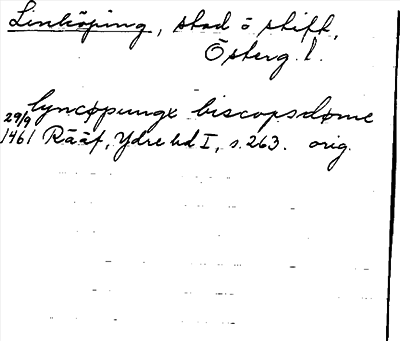 Linköping, stad o stift,
Österg. l.
lyncøpungx biscopsdøme
29/9
1461 Rääf, Ydre hd I, s. 263. orig.